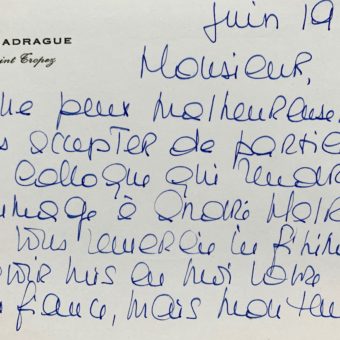 Juin 19
ADRAGUE
int Tropez
Monsieur,
ne peux malheureuse
s accepter de partic
colloque qui rendra
mmage à André Malr
Vous remercie infinim
voir mis en moi votre
fiance, mais mon tem